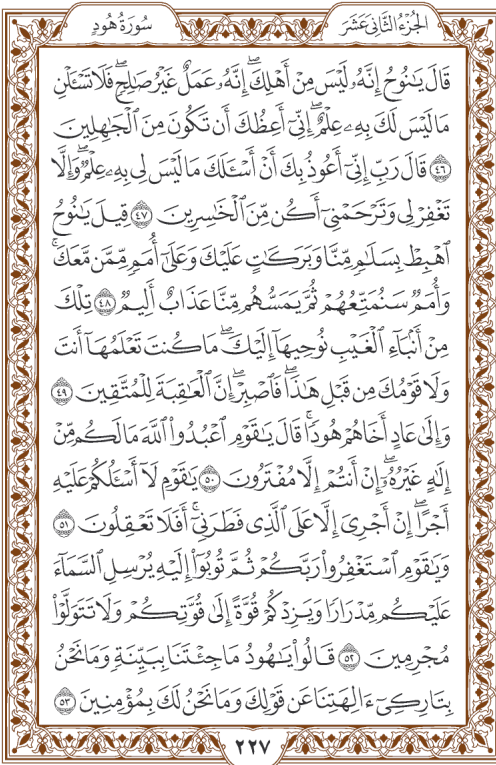 الجُزْءُ الثَّانِي عَشَرَ
سُورَةُ هُودٍ
قَالَ يَٰنُوحُ إِنَّهُۥ لَيْسَ مِنْ أَهْلِكَۖ إِنَّهُۥ عَمَلٌ غَيْرُ صَٰلِحٖۖ فَلَا تَسْـَٔلْنِ
مَا لَيْسَ لَكَ بِهِۦ عِلْمٌۖ إِنِّيٓ أَعِظُكَ أَن تَكُونَ مِنَ ٱلْجَٰهِلِينَ
٤٦ قَالَ رَبِّ إِنِّيٓ أَعُوذُ بِكَ أَنْ أَسْـَٔلَكَ مَا لَيْسَ لِي بِهِۦ عِلْمٌۖ وَإِلَّا
تَغْفِرْ لِي وَتَرْحَمْنِيٓ أَكُن مِّنَ ٱلْخَٰسِرِينَ ٤٧ قِيلَ يَٰنُوحُ
ٱهْبِطْ بِسَلَٰمٖ مِّنَّا وَبَرَكَٰتٍ عَلَيْكَ وَعَلَىٰٓ أُمَمٖ مِّمَّن مَّعَكَۚ
وَأُمَمٌ سَنُمَتِّعُهُمْ ثُمَّ يَمَسُّهُم مِّنَّا عَذَابٌ أَلِيمٌ ٤٨ تِلْكَ
مِنْ أَنۢبَآءِ ٱلْغَيْبِ نُوحِيهَآ إِلَيْكَۖ مَا كُنتَ تَعْلَمُهَآ أَنتَ
وَلَا قَوْمُكَ مِن قَبْلِ هَٰذَاۖ فَٱصْبِرْۖ إِنَّ ٱلْعَٰقِبَةَ لِلْمُتَّقِينَ ٤٩
وَإِلَىٰ عَادٍ أَخَاهُمْ هُودٗاۚ قَالَ يَٰقَوْمِ ٱعْبُدُوا۟ ٱللَّهَ مَا لَكُم مِّنْ
إِلَٰهٍ غَيْرُهُۥٓۖ إِنْ أَنتُمْ إِلَّا مُفْتَرُونَ ٥٠ يَٰقَوْمِ لَآ أَسْـَٔلُكُمْ عَلَيْهِ
أَجْرًاۖ إِنْ أَجْرِيَ إِلَّا عَلَى ٱلَّذِي فَطَرَنِيٓۚ أَفَلَا تَعْقِلُونَ ٥١
وَيَٰقَوْمِ ٱسْتَغْفِرُوا۟ رَبَّكُمْ ثُمَّ تُوبُوٓا۟ إِلَيْهِ يُرْسِلِ ٱلسَّمَآءَ
عَلَيْكُم مِّدْرَارٗا وَيَزِدْكُمْ قُوَّةً إِلَىٰ قُوَّتِكُمْ وَلَا تَتَوَلَّوْا۟
مُجْرِمِينَ ٥٢ قَالُوا۟ يَٰهُودُ مَا جِئْتَنَا بِبَيِّنَةٖ وَمَا نَحْنُ
بِتَارِكِيٓ ءَالِهَتِنَا عَن قَوْلِكَ وَمَا نَحْنُ لَكَ بِمُؤْمِنِينَ ٥٣
٢٢٧